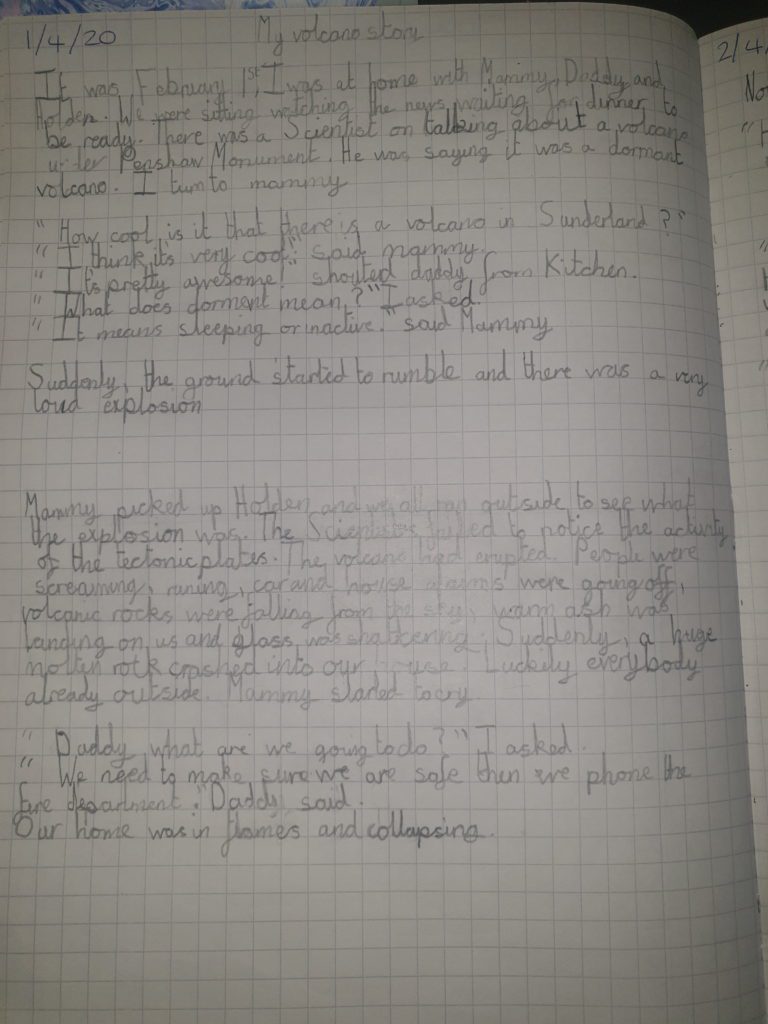 1/4/20
My volcano story
It was February 1st, I was at home with Mammy, Daddy and
Holden. We were sitting watching the news, waiting for dinner to
be ready. There was a Scientist on talking about a volcano
under Penshaw Monument. He was saying it was a dormant
volcano. I turn to mammy
"How cool is it that there is a volcano in Sunderland?"
"I think its very cool". said mammy.
"It's pretty awesome! shouted daddy from Kitchen.
"What does dorment mean?" I asked.
"It means sleeping or inactive." said Mammy
Suddenly, the ground started to rumble and there was a very
loud explosion
Mammy picked up Holden and we all ran outside to see what
the explosion was. The Scientists failed to notice the activity
of the tectonic plates. The volcano had erupted. People were
screaming, runing, car and house alarms were going off,
volcanic rocks were falling from the sky, warm ash was
landing on us and glass was shattering. Suddenly, a huge
moltyn rock crashed into our house. Luckily everybody
already outside. Mammy started to cry.
"Daddy, what are we going to do?" I asked.
"We need to make sure we are safe then we phone the
fire department." Daddy said.
Our home was in flames and collapsing.
2/4/
No
"H